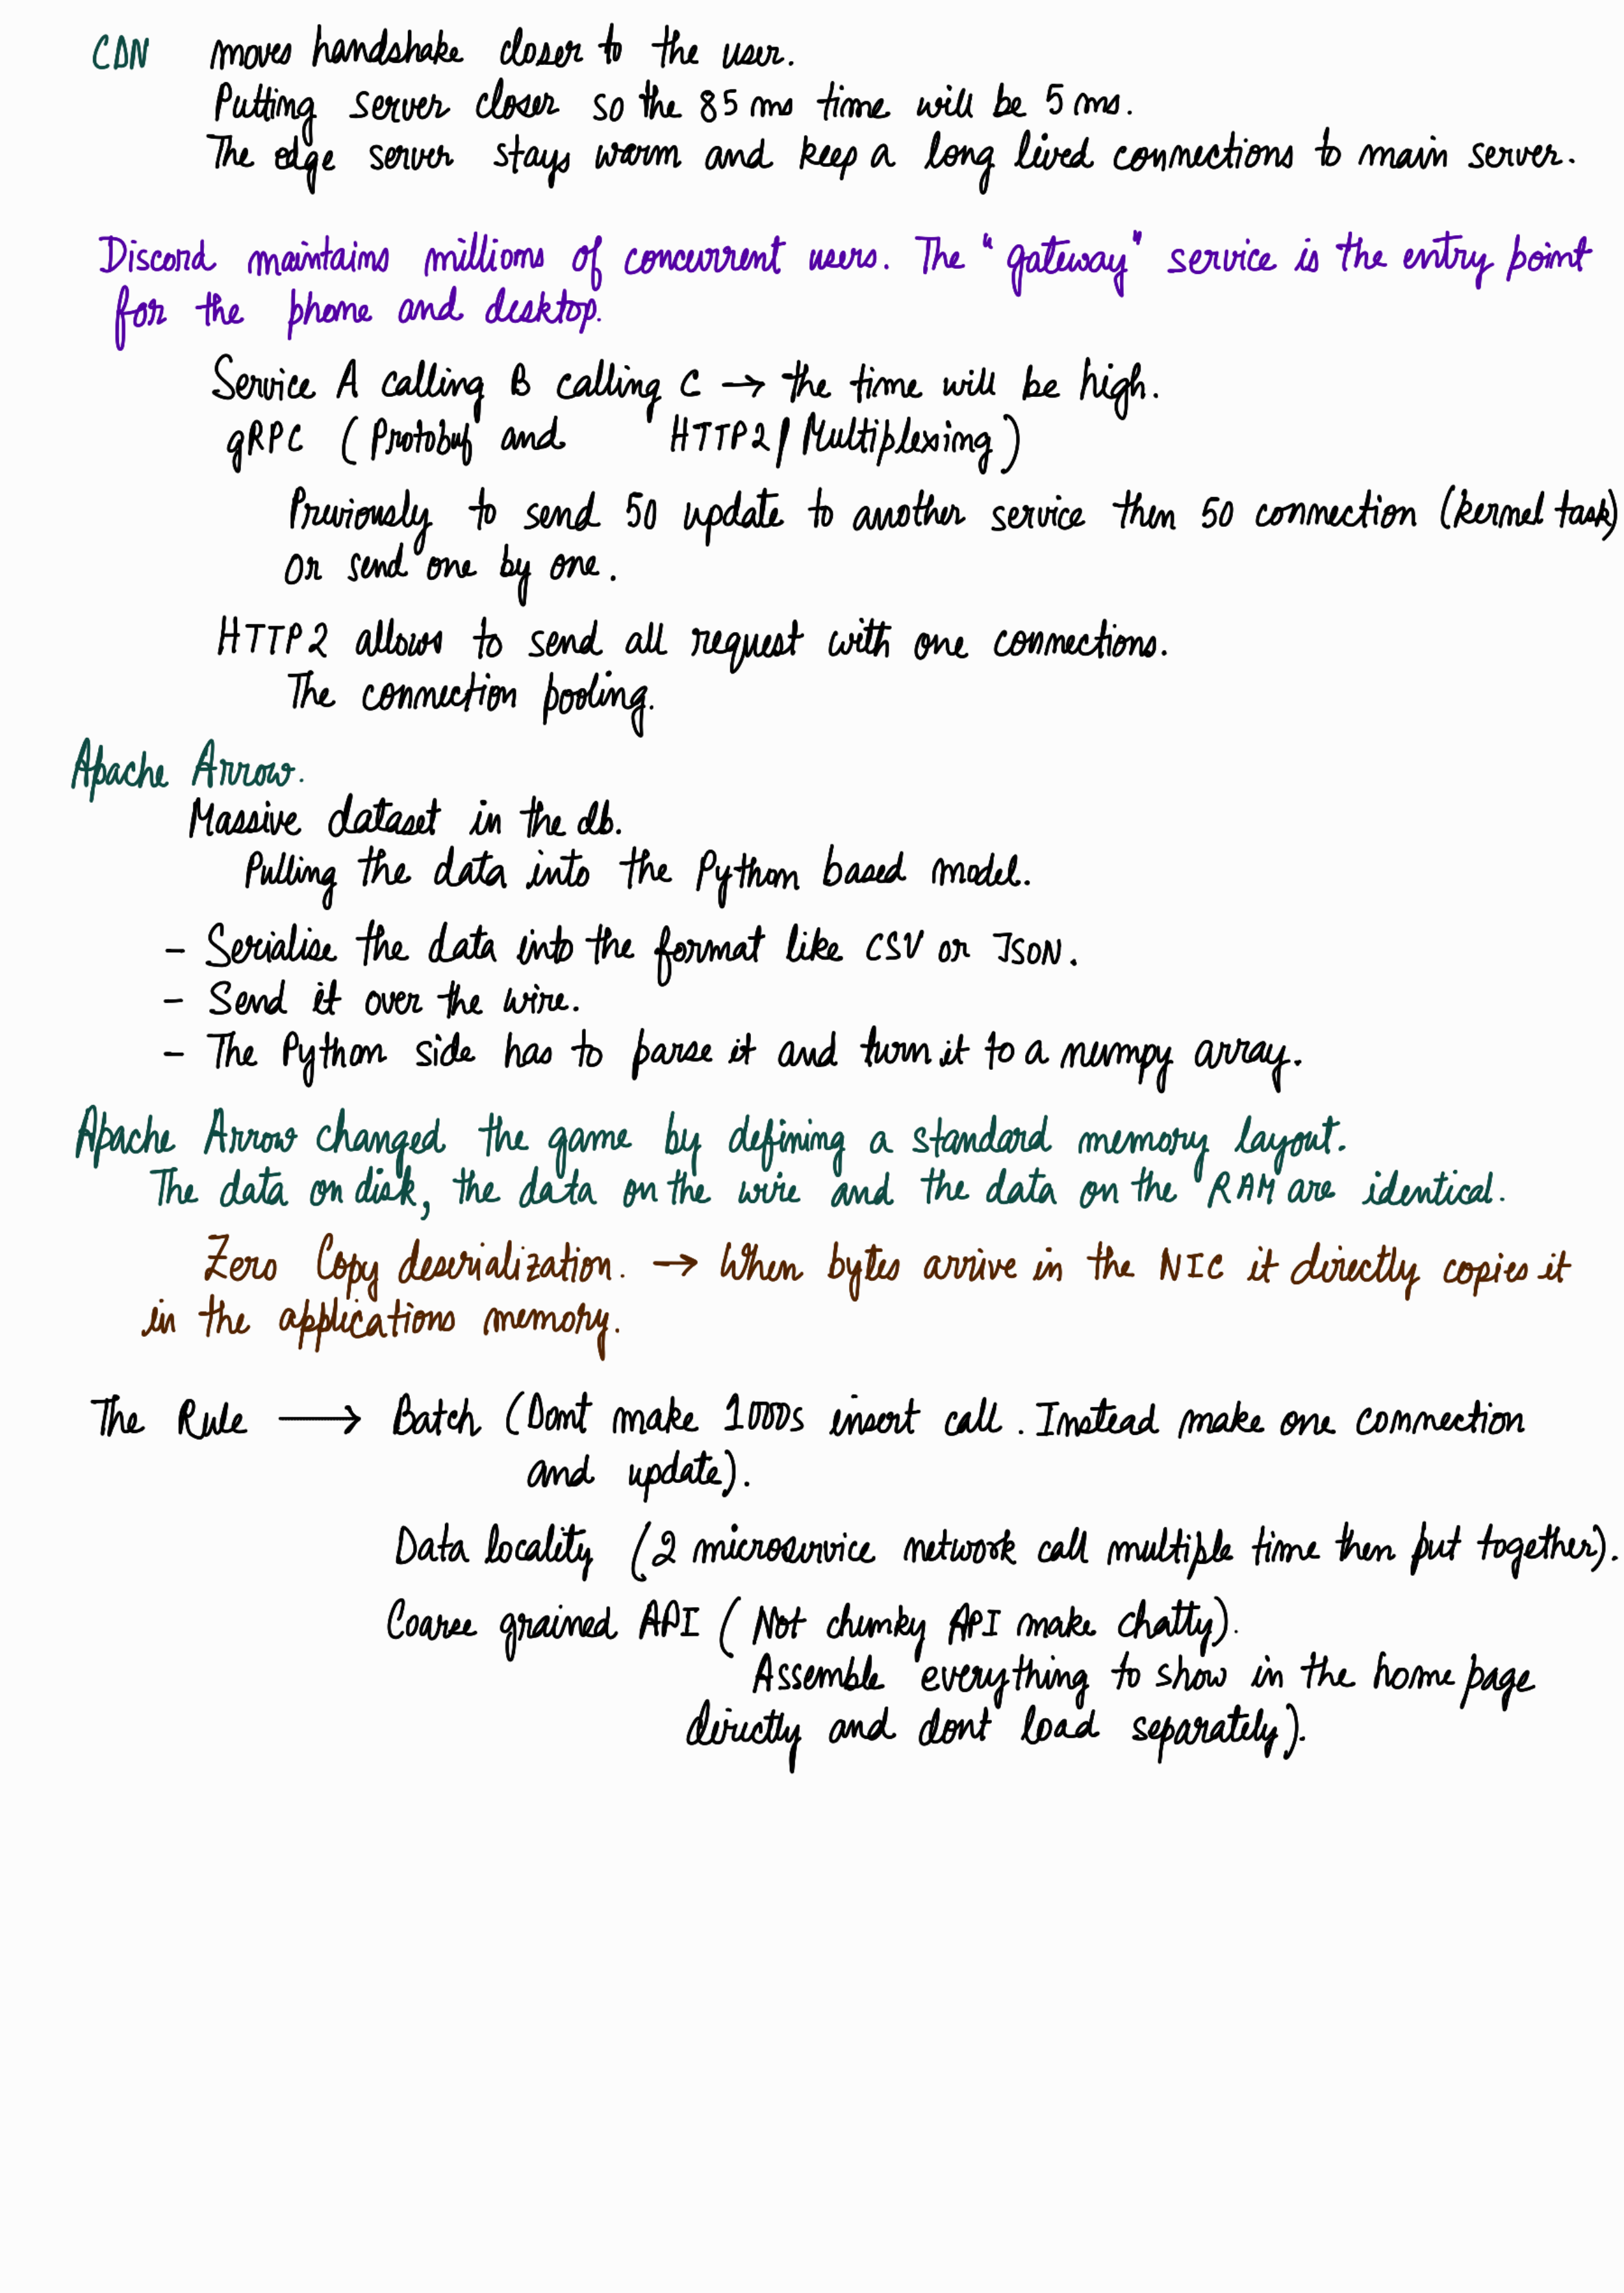 CDN moves handshake closer to the user.
Putting server closer so the 85 ms time will be 5 ms.
The edge server stays warm and keep a long lived connections to main server.
Discord maintains millions of concurrent users. The "gateway" service is the entry point
for the phone and desktop.
Service A calling B calling C → the time will be high.
gRPC (Protobuf and HTTP2/Multiplexing)
Previously to send 50 update to another service then 50 connection (kernel task)
or send one by one.
HTTP2 allows to send all request with one connections.
The connection pooling.
Apache Arrow.
Massive dataset in the db.
Pulling the data into the Python based model.
- Serialise the data into the format like CSV or JSON.
- Send it over the wire.
- The Python side has to parse it and turn it to a numpy array.
Apache Arrow changed the game by defining a standard memory layout.
The data on disk, the data on the wire and the data on the RAM are identical.
Zero Copy deserialization. → When bytes arrive in the NIC it directly copies it
in the applications memory.
The Rule → Batch (Dont make 1000s insert call. Instead make one connection
and update).
Data locality (2 microservice network call multiple time then put together).
Coarse grained API (Not chunky API make chatty).
Assemble everything to show in the home page
directly and dont load separately).